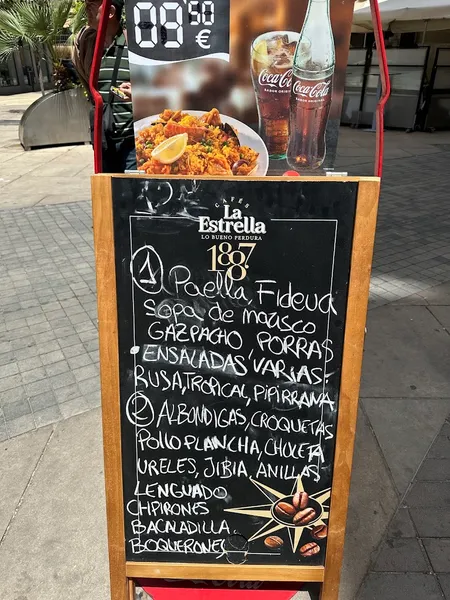 08'50
€
Coca-Cola
SABOR ORIGINAL
Coca-Cola
SABOR ORIGINAL
CAFÉS
La
Estrella
LO BUENO PERDURA
1887
1 Paella, Fideua
Sopa de marisco
GAZPACHO PORRAS
. ENSALADAS VARIAS
RUSA, TROPICAL, PIPIRRANA
2 ALBONDIGAS, CROQUETAS
POLLO PLANCHA, CHULETA
URELES, JIBIA, ANILLAS
LENGUADO
CHIPIRONES
BACALADILLA
BOQUERONES